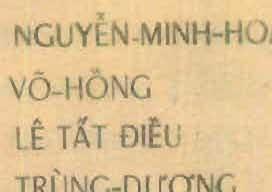 NGUYỄN-MINH-HO
VÕ-HỒNG
LÊ TẤT ĐIỀU
TRÙNG-DƯƠNG